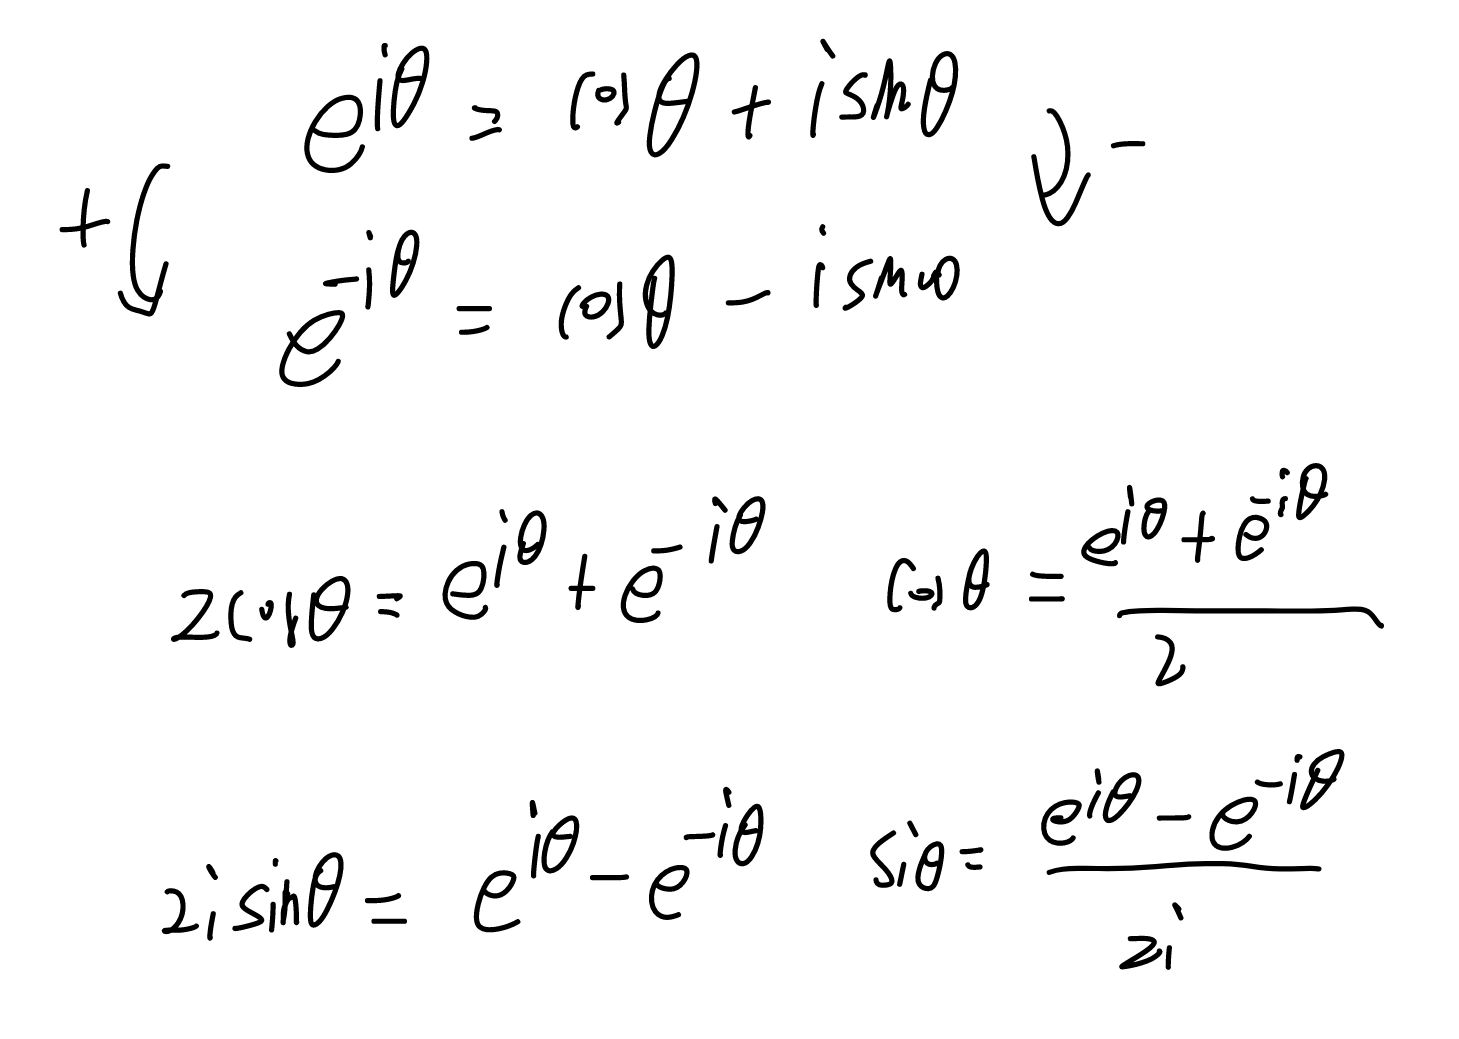 e^{iθ} = cosθ + i sinθ
+ -
e^{-iθ} = cosθ - i sinθ
2cosθ = e^{iθ} + e^{-iθ} cosθ = \frac{e^{iθ} + e^{-iθ}}{2}
2i sinθ = e^{iθ} - e^{-iθ} siθ = \frac{e^{iθ} - e^{-iθ}}{2i}